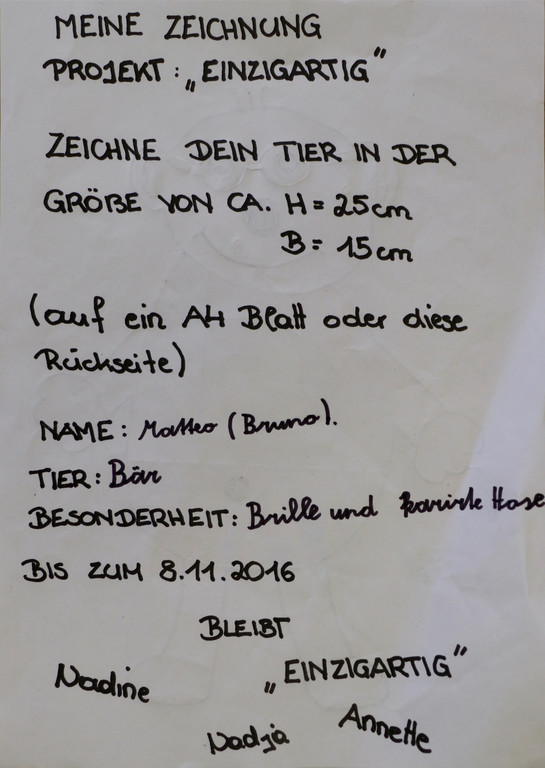 MEINE ZEICHNUNG
PROJEKT: „EINZIGARTIG"
ZEICHNE DEIN TIER IN DER
GRÖßE VON CA. H = 25cm
B = 15cm
(auf ein A4 Blatt oder diese
Rückseite)
NAME: Matteo (Bruno).
TIER: Bär
BESONDERHEIT: Brille und karirte Hose
BIS ZUM 8.11.2016
BLEIBT
„EINZIGARTIG"
Nadine
Nadja
Annette